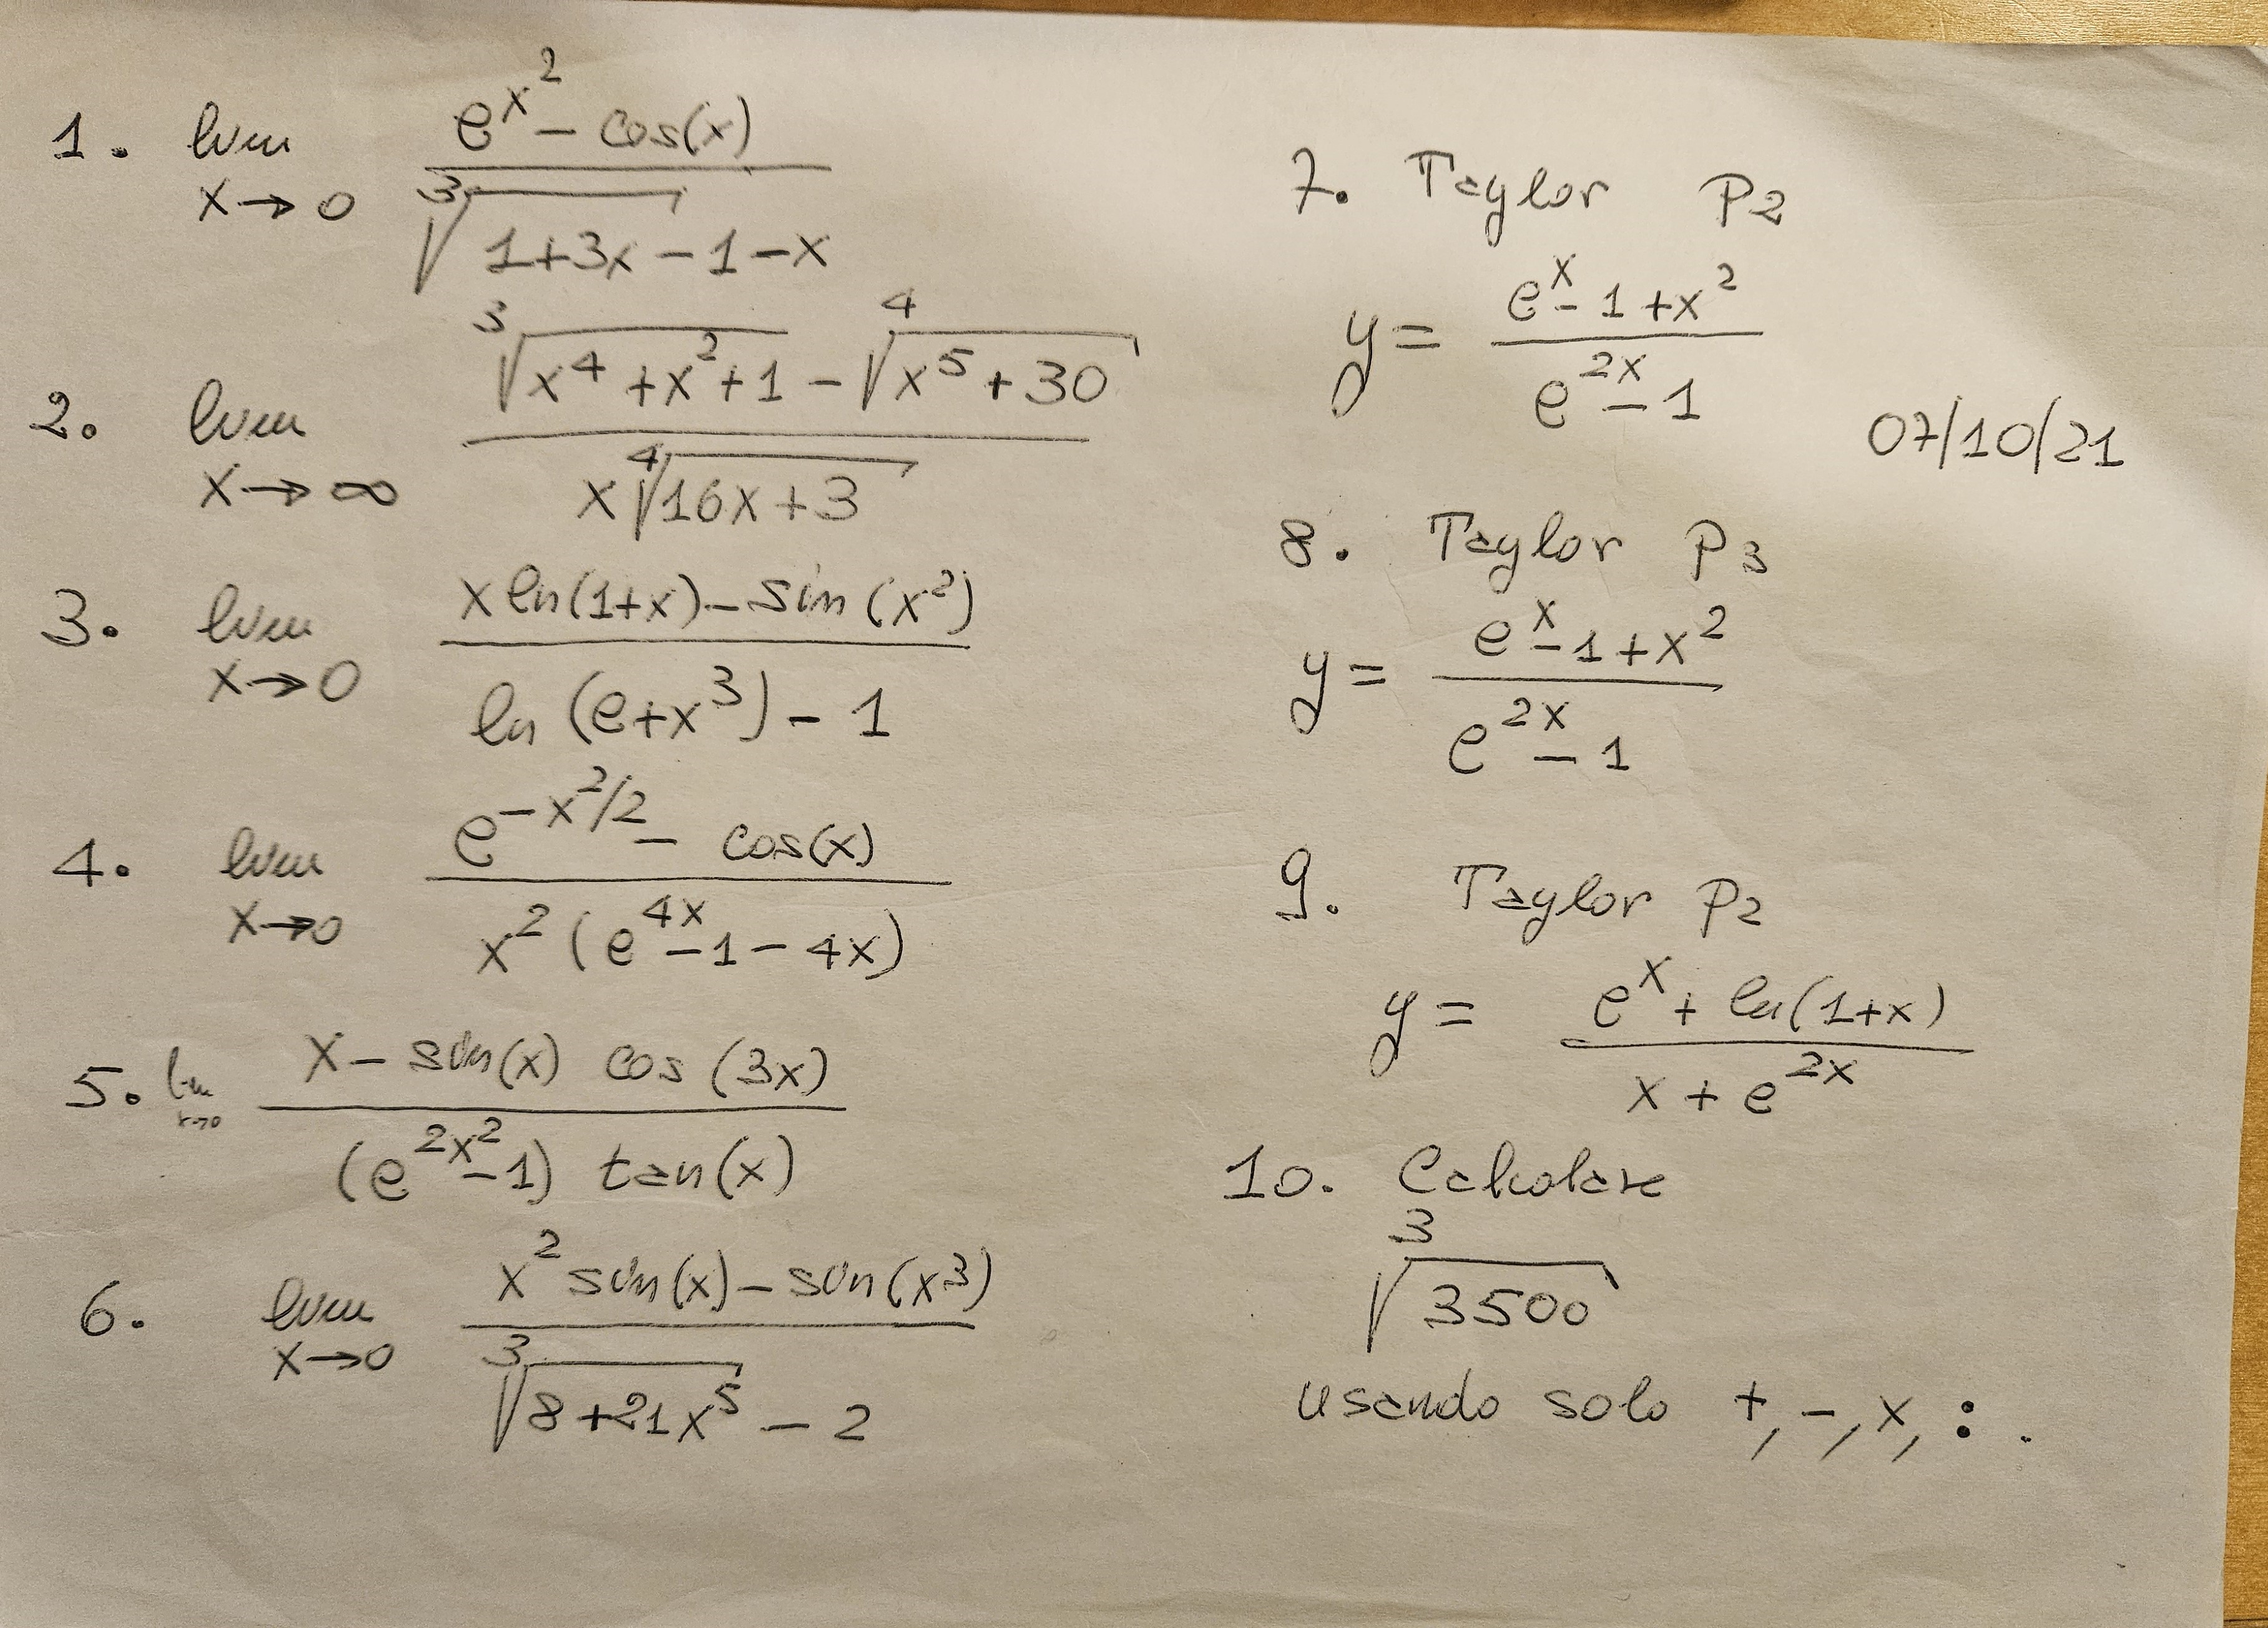 1. lim x→0 (e^(x^2) - cos(x)) / (∛(1+3x) - 1 - x)
2. lim x→∞ (∛(x^4 + x^2 + 1) - ∜(x^5 + 30)) / (x ∜(16x + 3))
3. lim x→0 (x ln(1+x) - sin(x^2)) / (ln(e + x^3) - 1)
4. lim x→0 (e^(-x^2/2) - cos(x)) / (x^2 (e^(4x) - 1 - 4x))
5. lim x→0 (x - sin(x) cos(3x)) / ((e^(2x^2) - 1) tan(x))
6. lim x→0 (x^2 sin(x) - sin(x^3)) / (∛(8 + 21x^5) - 2)
7. Taylor P2
y = (e^x - 1 + x^2) / (e^(2x) - 1)
07/10/21
8. Taylor P3
y = (e^x - 1 + x^2) / (e^(2x) - 1)
9. Taylor P2
y = (e^x + ln(1+x)) / (x + e^(2x))
10. Calcolare
∛3500
usando solo +, -, x, : .